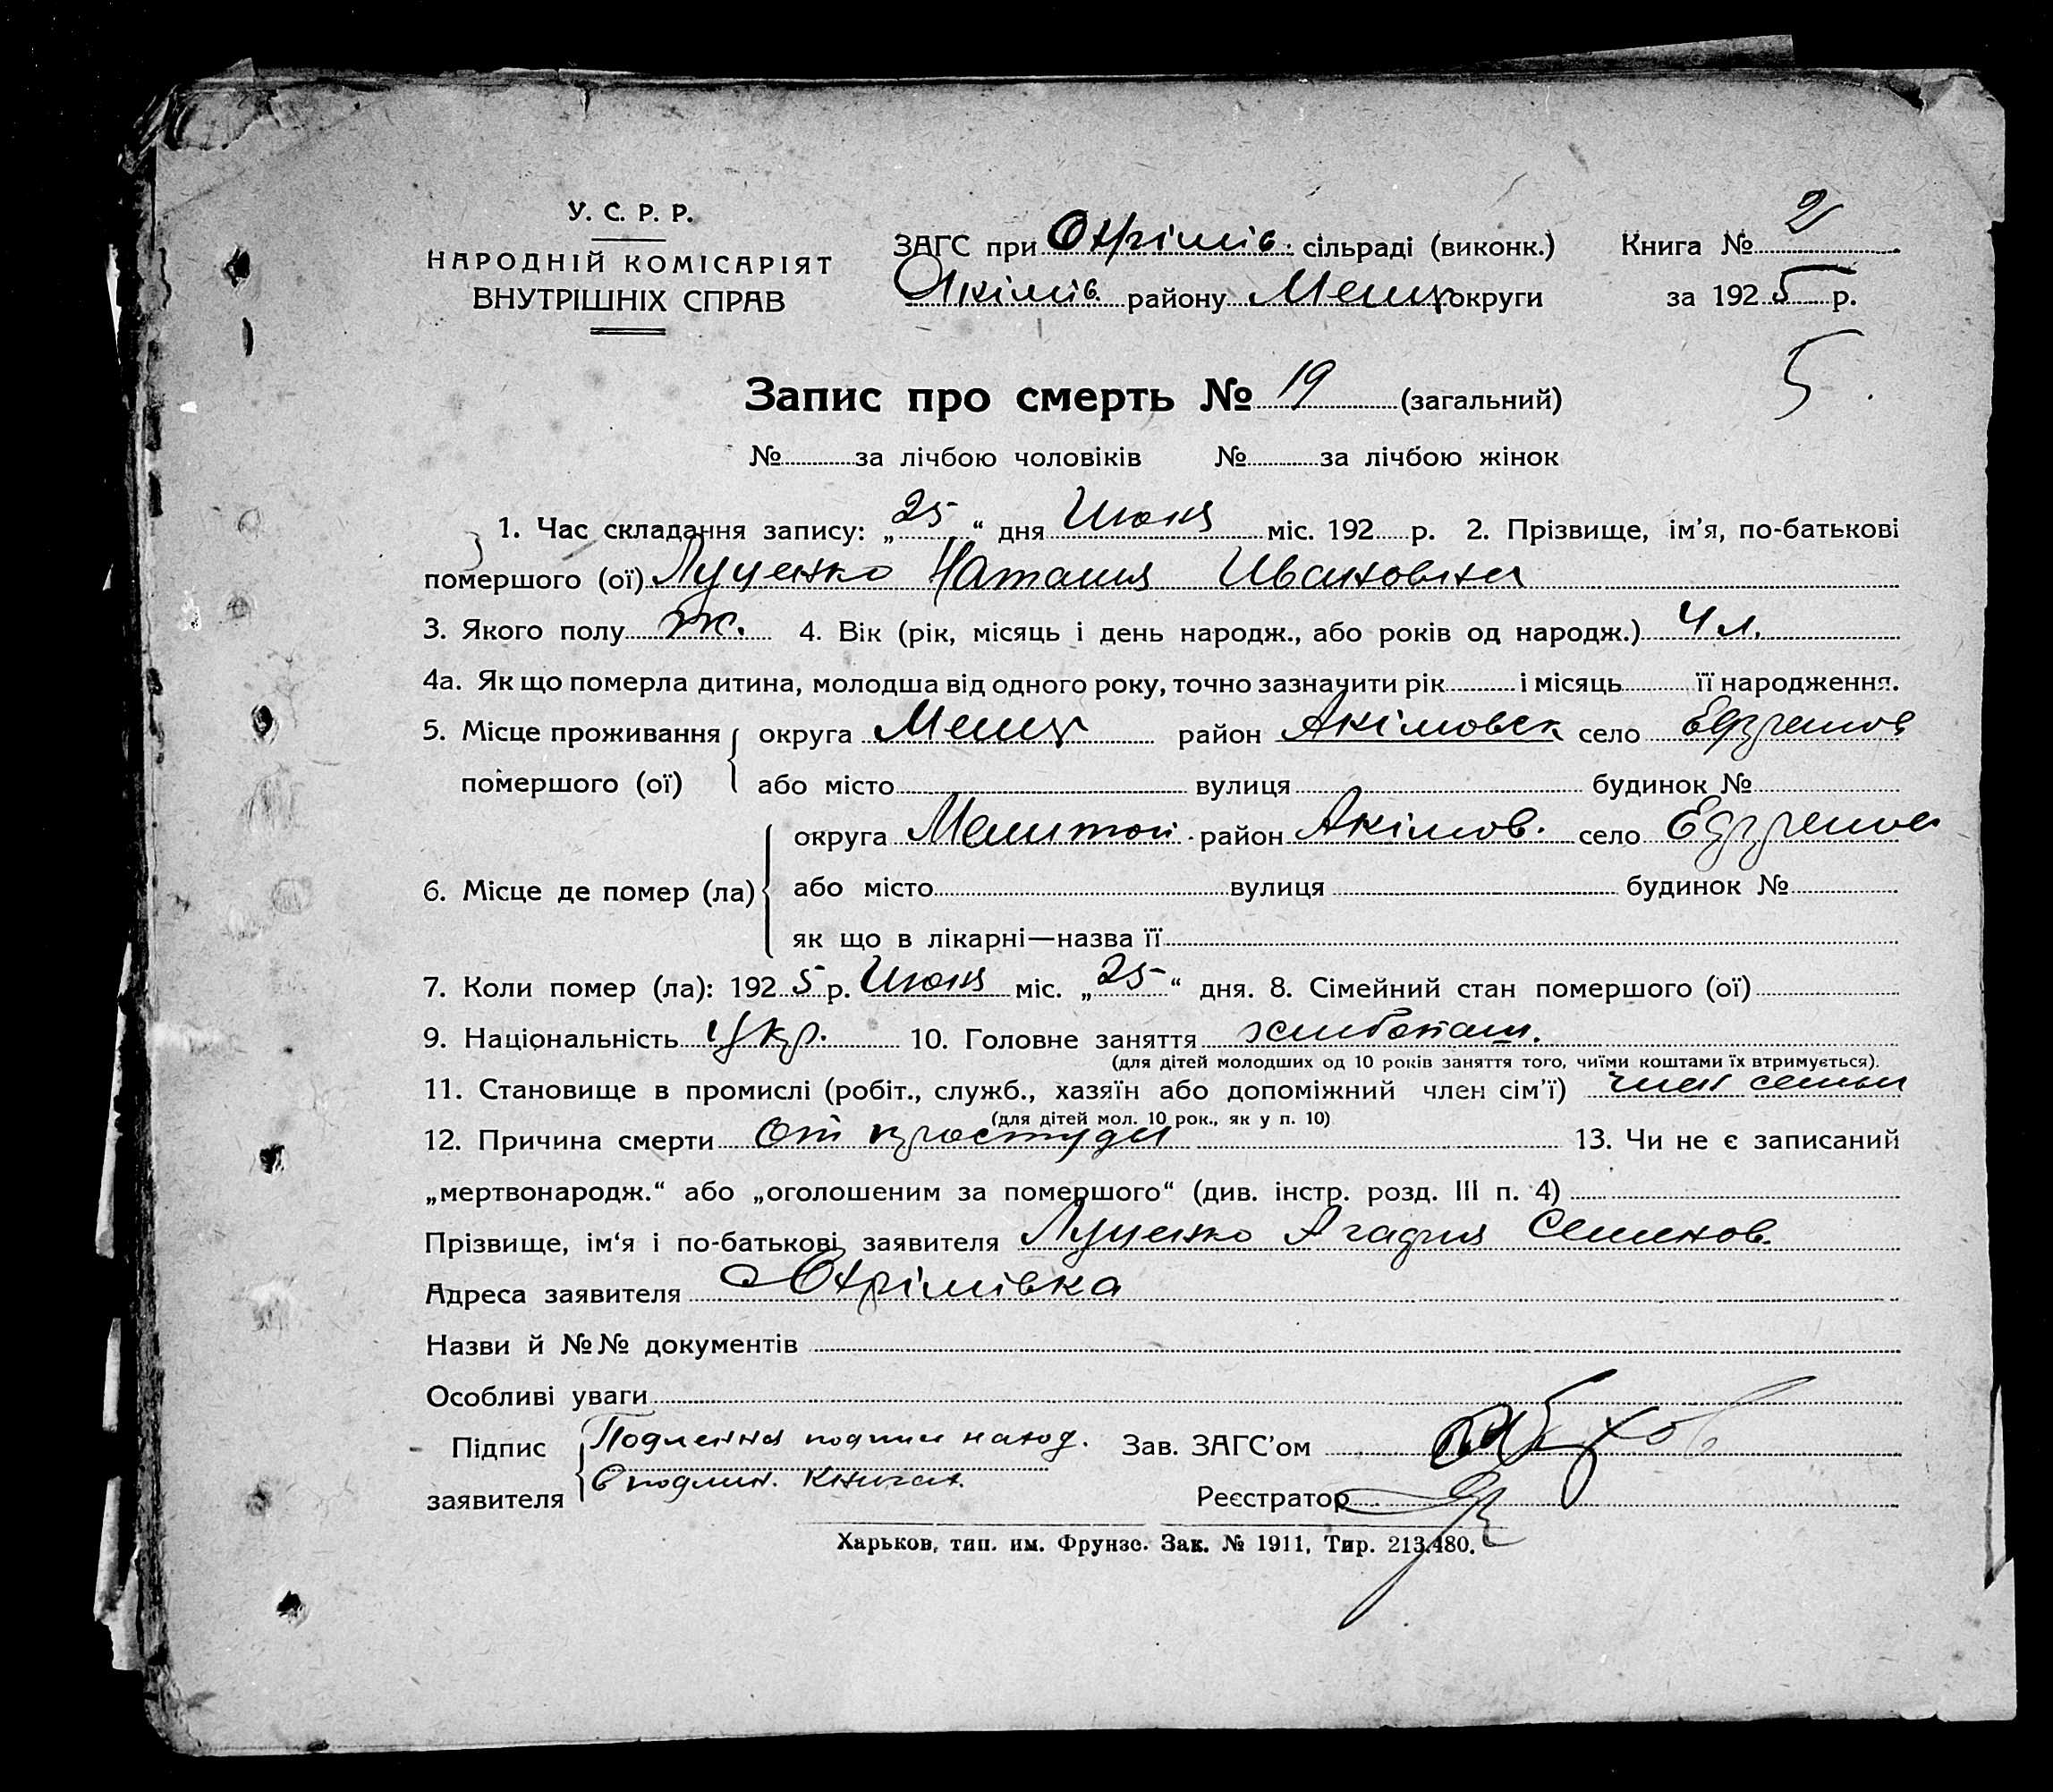 У. С. Р. Р.
НАРОДНІЙ КОМІСАРІЯТ
ВНУТРІШНІХ СПРАВ
ЗАГС при Охрімів. сільраді (виконк.) Книга № 2
Якімів. району округи за 1925 р.
5.
Запис про смерть № 19 (загальний)
№ за лічбою чоловіків № за лічбою жінок
1. Час складання запису: „25“ дня Июня міс. 192 р. 2. Прізвище, ім'я, по-батькові
помершого (ої) Луценко Наталия Ивановна
3. Якого полу ж. 4. Вік (рік, місяць і день народж., або років од народж.) 4 л.
4а. Як що померла дитина, молодша від одного року, точно зазначити рік і місяць її народження.
5. Місце проживання округа район Акімовск село
помершого (ої) або місто вулиця будинок №
округа Мелитоп. район Акімов. село
6. Місце де помер (ла) або місто вулиця будинок №
як що в лікарні—назва її
7. Коли помер (ла): 1925 р. Июня міс. „25“ дня. 8. Сімейний стан помершого (ої)
9. Національність укр. 10. Головне заняття хлібопаш.
(для дітей молодших од 10 років заняття того, чиїми коштами їх втримується).
11. Становище в промислі (робіт., служб., хазяїн або допоміжний член сім'ї) член семьи
(для дітей мол. 10 рок., як у п. 10)
12. Причина смерти От простуды 13. Чи не є записаний
„мертвонародж.“ або „оголошеним за помершого“ (див. інстр. розд. III п. 4)
Прізвище, ім'я і по-батькові заявителя Луценко Агафия Семенов.
Адреса заявителя Охрімівка
Назви й №№ документів
Особливі уваги
Підпис Подленная подпись наход. Зав. ЗАГС'ом
заявителя в подлин. книгах. Реєстратор
Харьков, тип. им. Фрунзе. Зак. № 1911, Тир. 213.480.